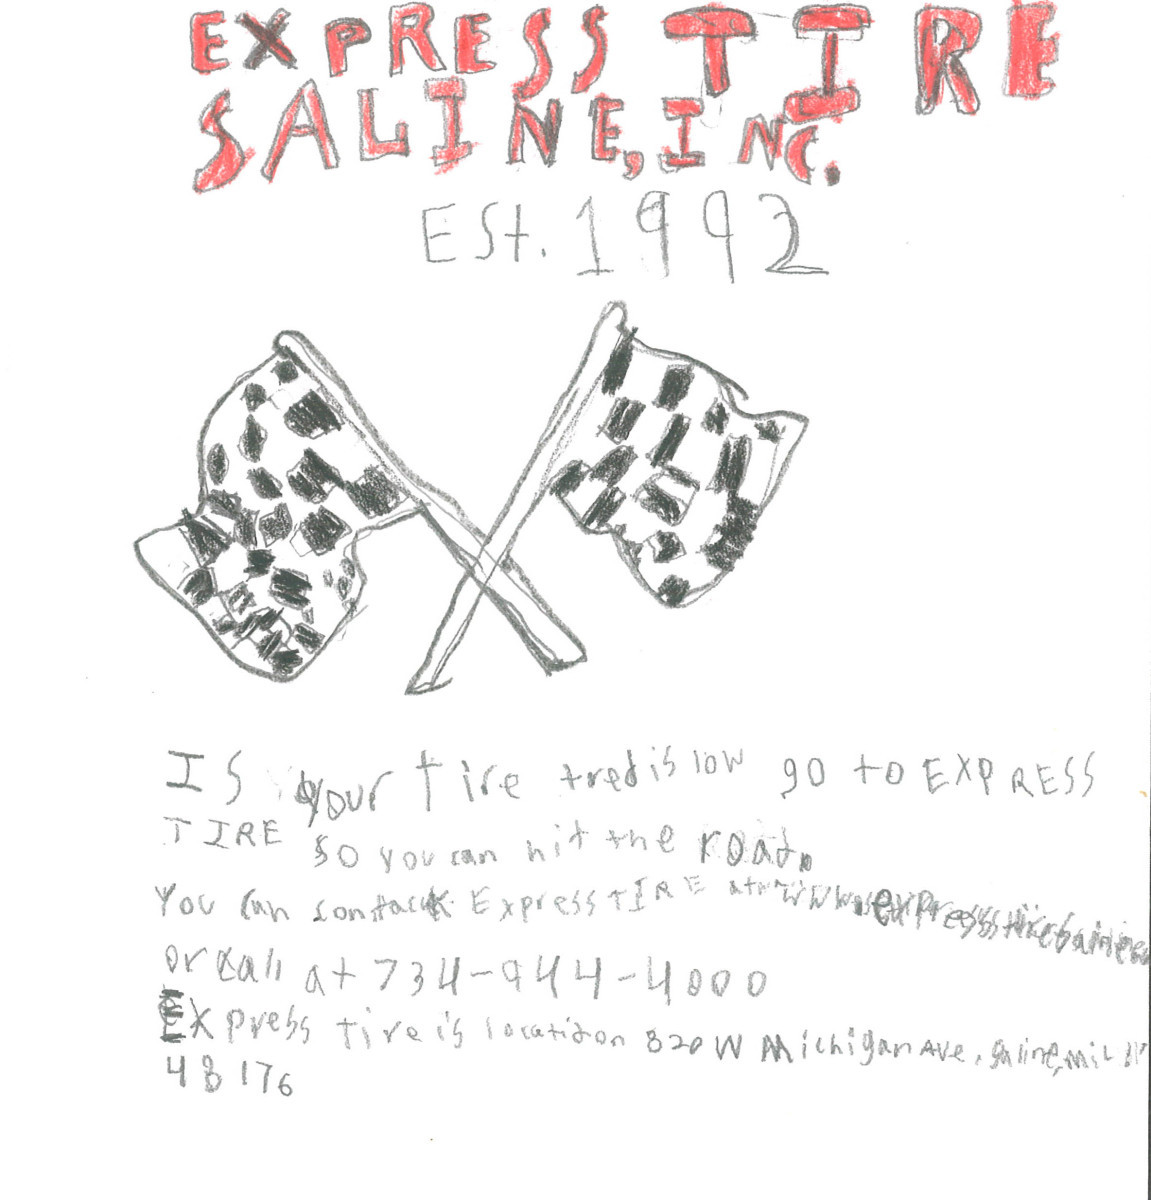 EXPRESS TIRE
SALINE, INC.
Est. 1992
IS your tire tred is low go to EXPRESS
TIRE so you can hit the road.
You can contack Express TIRE at www.expresstiresaline
or call at 734-944-4000
Express tire is location 820 W Michigan Ave, saline, mi
48176